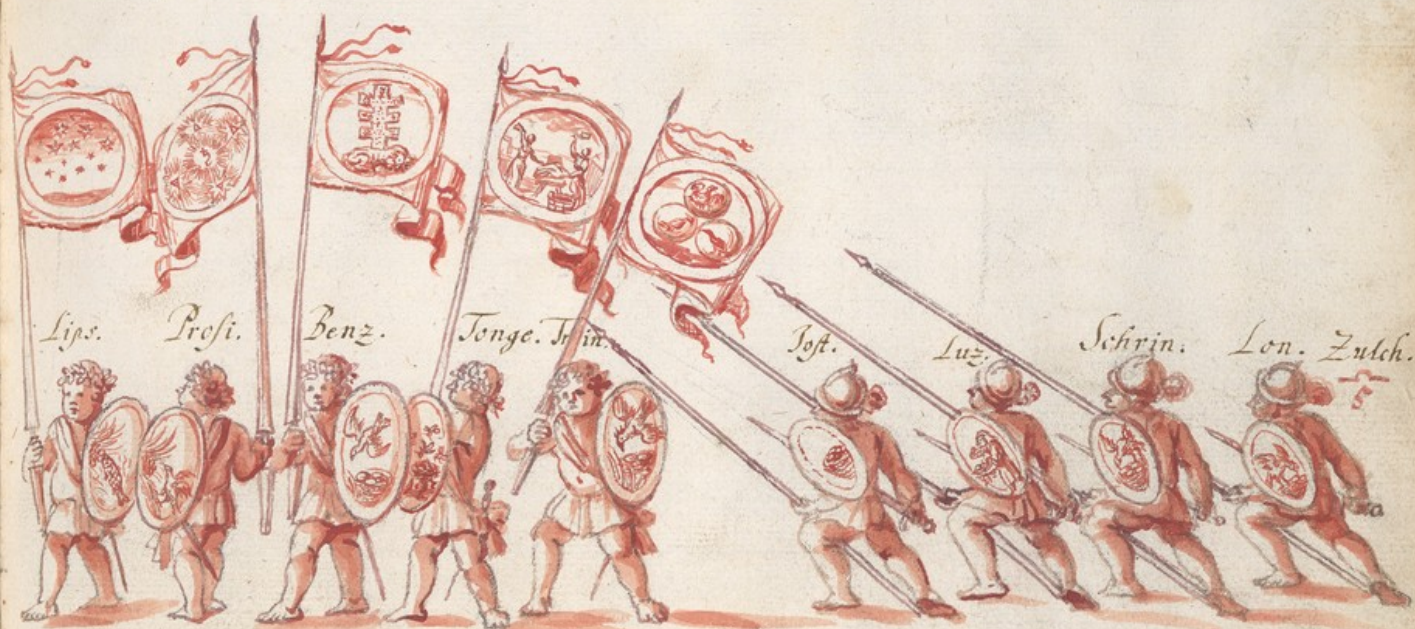 Lips. Profi. Benz. Tonge. Train. Jost. Luz. Schrin. Lon. Zulch.